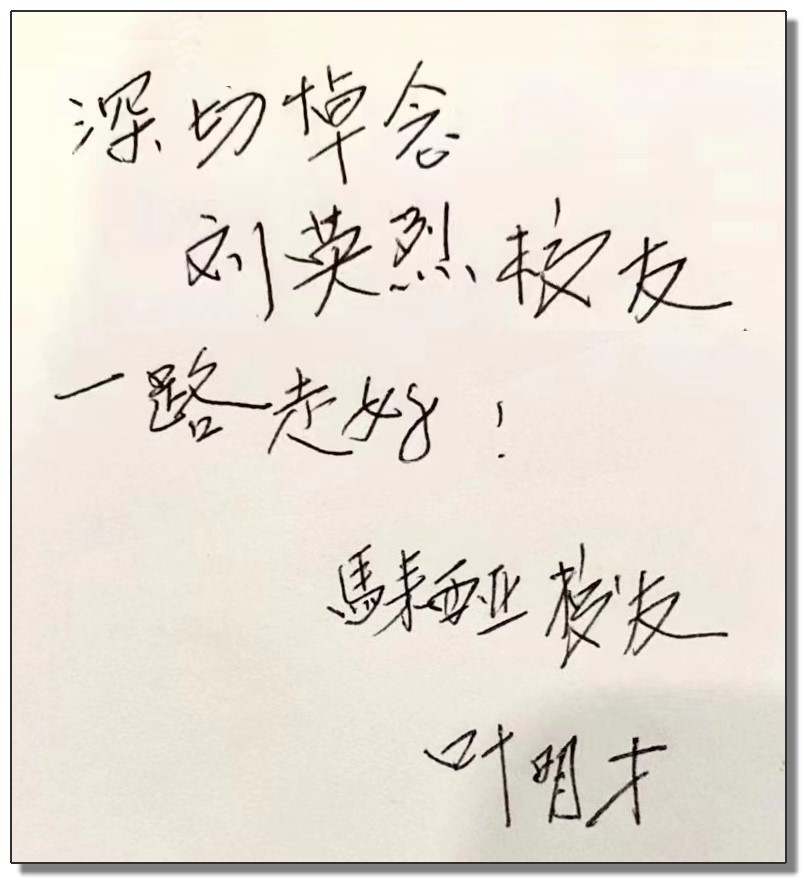 深切悼念
刘英烈校友
一路走好！
馬来西亚校友
叶明才